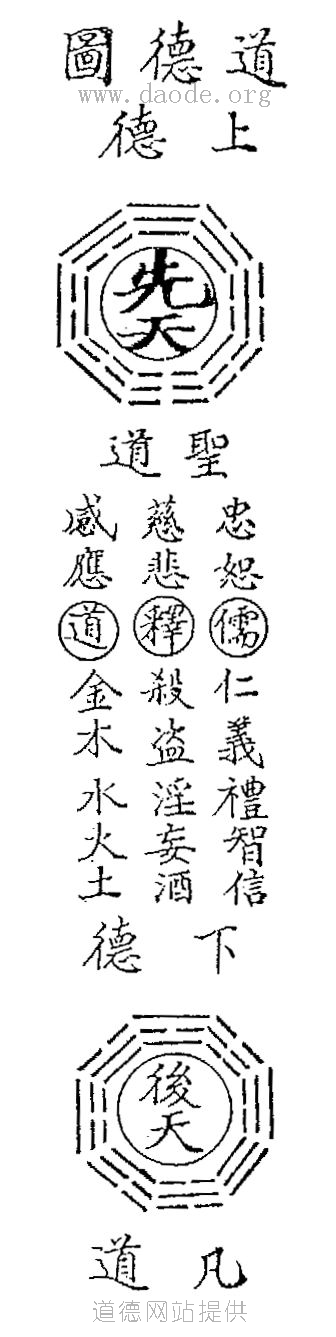 道德圖
www.daode.org
上德
先天
聖道
忠恕儒仁義禮智信
慈悲釋殺盗淫妄酒
感應道金木水火土
下德
後天
凡道
道德网站提供